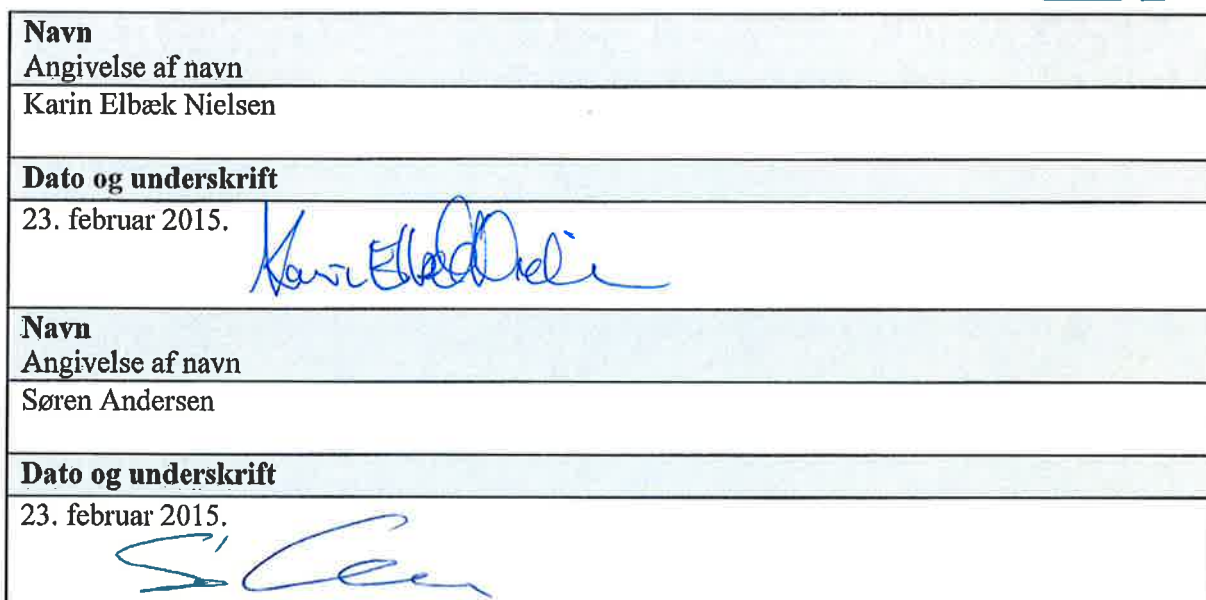 Navn
Angivelse af navn
Karin Elbæk Nielsen
Dato og underskrift
23. februar 2015.
Karin Elbæk Nielsen
Navn
Angivelse af navn
Søren Andersen
Dato og underskrift
23. februar 2015.